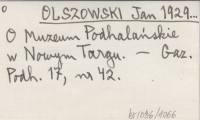 OLSZOWSKI Jan 1929...
O Muzeum Podhalańskie
w Nowym Targu. — Gaz.
Podh. 17, nr 42.